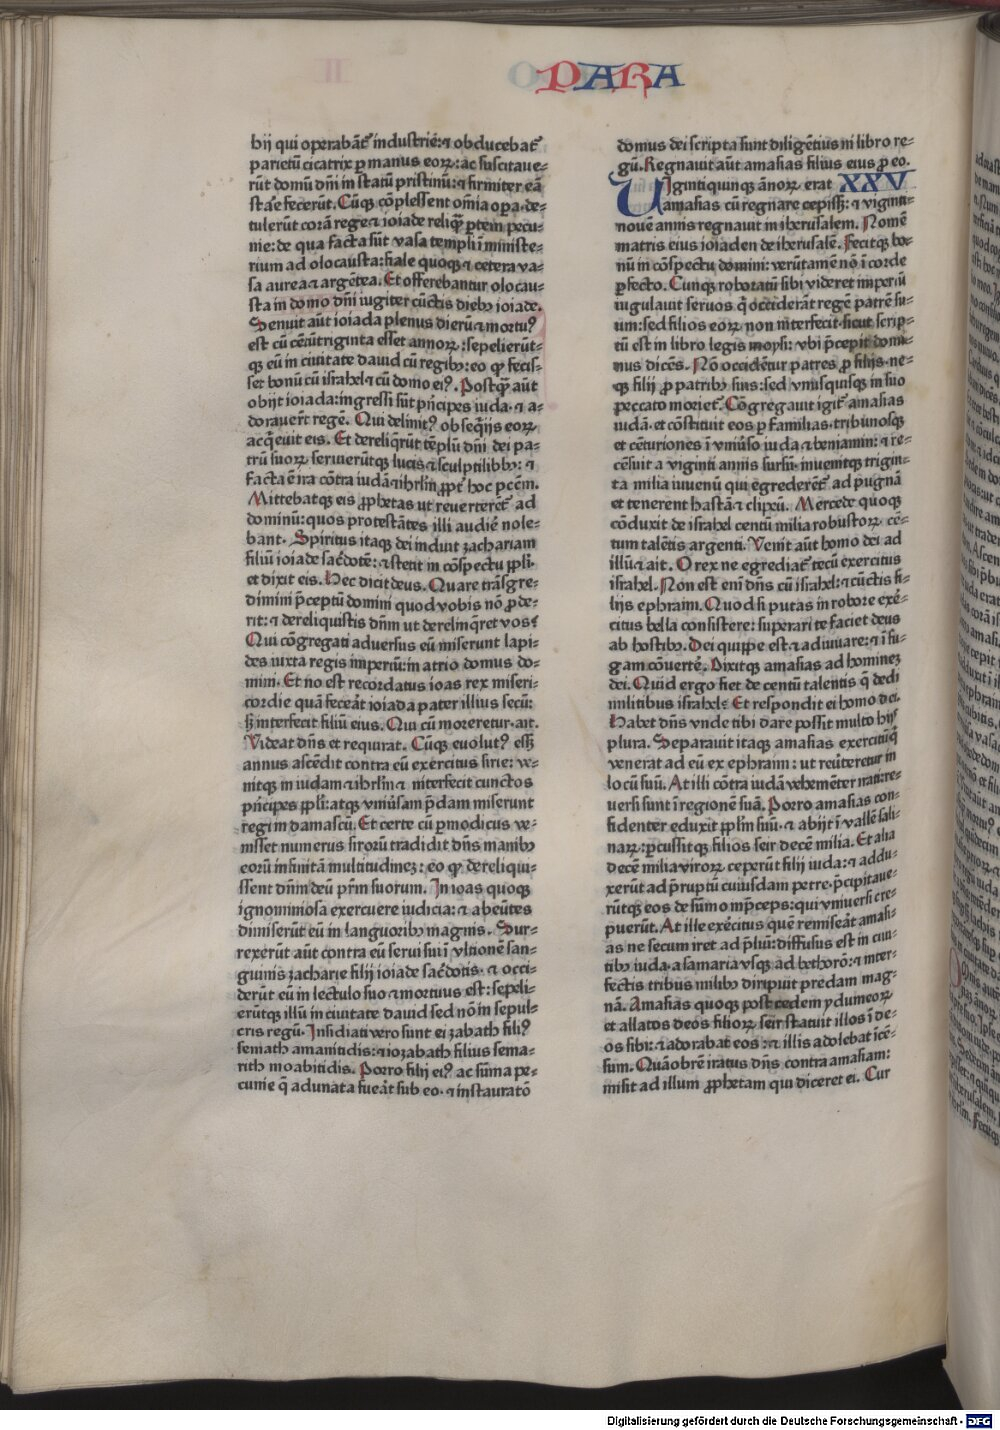 PARA
hij qui operabāt᷑ industrie: ⁊ obducebat᷑
parietū cicatrix ꝑ manus eoꝝ: ac suscitaue⸗
rūt domū dn̄i in statū pristinū: ⁊ firmiter eā
stāe fecerūt. Cūqꝫ cōplessent om̄ia opa. de⸗
tulerūt corā rege ⁊ ioiade reliqꝫ ꝑtem pecu⸗
nie: de qua facta sūt vasa templi ī ministe⸗
rium ad olocausta: fiale quoqꝫ ⁊ cetera va⸗
sa aurea ⁊ argētea. Et offerebantur olocau⸗
sta in domo dn̄i iugiter cūctis diebꝫ ioiade.
Senuit aūt ioiada plenus dierū ⁊ mortuꝰ
est cū cētūtriginta esset annoꝝ: sepelierūt⸗
qꝫ eū in ciuitate dauid cū regibꝫ: eo qꝙ fecis⸗
set bonū cū israhel ⁊ cū domo eiꝰ. Postqꝫ aūt
obijt ioiada: ingressi sūt pn̄cipes iuda. ⁊ a⸗
dorauerūt regē. Qui delinitꝰ obseqͥjs eoꝝ
acqͥeuit eis. Et dereliqͥrūt tēplū dn̄i dei pa⸗
trū suoꝝ seruierūtqꝫ lucis ⁊ sculptilibꝫ: ⁊
facta ē ira cōtra iudā ⁊ ihrl̄m ꝓpt᷑ hoc pc̄cm.
Mittebatqꝫ eis ꝓphetas ut reuerterēt᷑ ad
dominū: quos protestātes illi audiē nole⸗
bant. Spiritus itaqꝫ dei induit zachariam
filiū ioiade sac̄dotē: ⁊ stetit in cōspectu ppl̄i.
et dixit eis. Hec dicit deus. Quare trāsgre⸗
dimini p̄ceptū domini quod vobis nō ꝓde⸗
rit: ⁊ dereliquistis dn̄m ut derelinqret vos?
Qui cōgregati aduersus eū miserunt lapi⸗
des iuxta regis imperiū: in atrio domus do⸗
mini. Et no est recordatus ioas rex miseri⸗
cordie quā feceāt ioiada pater illius secū:
sꝫ interfecit filiū eius. Qui cū moreretur. ait.
Videat dn̄s et requirat. Cūqꝫ euolutꝰ essꝫ
annus ascēdit contra eū exercitus sirie: ve⸗
nitqꝫ in iudam ⁊ ihrl̄m ⁊ interfecit cunctos
pn̄cipes ppl̄i: atqꝫ vniūsam p̄dam miserunt
regi in damascū. Et certe cū ꝑmodicus ve⸗
nisset numerus sirorū tradidit dn̄s manibꝫ
eorū infinitā multitudinēꝫ: eo qꝙ dereliqui⸗
ssent dn̄m deū pr̄m suorum. In ioas quoqꝫ
ignominiosa exercuere iudicia: ⁊ abeūtes
dimiserūt eū in languoribꝫ magnis. Sur⸗
rexerūt aūt contra eū serui sui ī vltionē san⸗
guinis zacharie filij ioiade sac̄dotis. ⁊ occi⸗
derūt eū in lectulo suo ⁊ mortuus est: sepeli⸗
erūtqꝫ illū in ciuitate dauid sed nō in sepul⸗
cris regū. Insidiati vero sunt ei zabath filiꝰ
semath amanitidis: ⁊ iozabath filius sema⸗
rith moabitidis. Porro filij eiꝰ ac sūma pe⸗
cunie q̄ adunata fueāt sub eo. ⁊ instauratō
domus dei scripta sunt diligētius in libro re⸗
gū. Regnauit aūt amasias filius eius ꝓ eo.
XXV
Uiginti quinqꝫ ānoꝝ erat
amasias cū regnare cepissꝫ: ⁊ viginti⸗
nouē annis regnauit in iherusalem. Nomē
matris eius ioiaden de iherusalē. Fecitqꝫ bo⸗
nū in cōspectu domini: verūtamē nō ī corde
ꝑfecto. Cunqꝫ roboratū sibi videret imperiū
iugulauit seruos q̄ occiderāt regē patrē su⸗
um: sed filios eoꝝ non interfecit. sicut scrip⸗
tū est in libro legis moysi: vbi p̄cepit domi⸗
nus dicēs. Nō occidētur patres ꝓ filijs. ne⸗
qꝫ filij ꝓ patribꝫ suis: sed vnusquisqꝫ in suo
peccato moriet᷑. Cōgregauit igit᷑ amasias
iudā. et cōstituit eos ꝑ familias. tribunosqꝫ
et cēturiones ī vniūso iuda ⁊ beniamin: ⁊ re⸗
cēsuit a viginti annis sursū. inuenitqꝫ trigin⸗
ta milia iuuenū qui egrederēt᷑ ad pugnā
et tenerent hastā ⁊ clipeū. Mercede quoqꝫ
cōduxit de israhel centū milia robustoꝝ cē⸗
tum talētis argenti. Venit aūt homo dei ad
illū ⁊ ait. O rex ne egrediat᷑ tecū exercitus
israhel. Non est enī dn̄s cū israhel: ⁊ cūctis fi⸗
lijs ephraim. Quod si putas in robore exēr⸗
citus bella consistere: superari te faciet deus
ab hostibꝫ. Dei quippe est ⁊ adiuuare: ⁊ ī fu⸗
gam cōuertē. Dixitqꝫ amasias ad hominēꝫ
dei. Quid ergo fiet de centū talentis q̄ dedi
militibus israhel? Et respondit ei homo dei.
Habet dn̄s vnde tibi dare possit multo hijs
plura. Separauit itaqꝫ amasias exercitū q̄
venerat ad eū ex ephraim: ut reūteretur in
locū suū. At illi cōtra iudā vehemēter irati: re⸗
uersi sunt ī regionē suā. Porro amasias con⸗
fidenter eduxit ppl̄m suū. ⁊ abijt ī vallē sali⸗
naꝝ: ꝑcussitqꝫ filios seir decē milia. Et alia
decē milia viroꝝ ceperūt filij iuda: ⁊ addu⸗
xerūt ad p̄ruptū cuiusdam petre. p̄cipitaue⸗
rūtqꝫ eos de sūmo in p̄ceps: qui vniuersi cre⸗
puerūt. At ille exēcitus quē remiseāt amasi⸗
as ne secum iret ad p̄liū: diffusus est in ciui⸗
tibꝫ iuda. a samaria vsqꝫ ad bethorō: ⁊ inter⸗
fectis tribus milibꝫ diripuit predam mag⸗
nā. Amasias quoqꝫ post cedem ydumeoꝝ
et allatos deos filioꝝ seir statuit illos ī de⸗
os sibi: ⁊ adorabat eos: ⁊ illis adolebat icē⸗
sum. Quāobrē iratus dn̄s contra amasiam:
misit ad illum ꝓphetam qui diceret ei. Cur
Digitalisierung gefördert durch die Deutsche Forschungsgemeinschaft - DFG